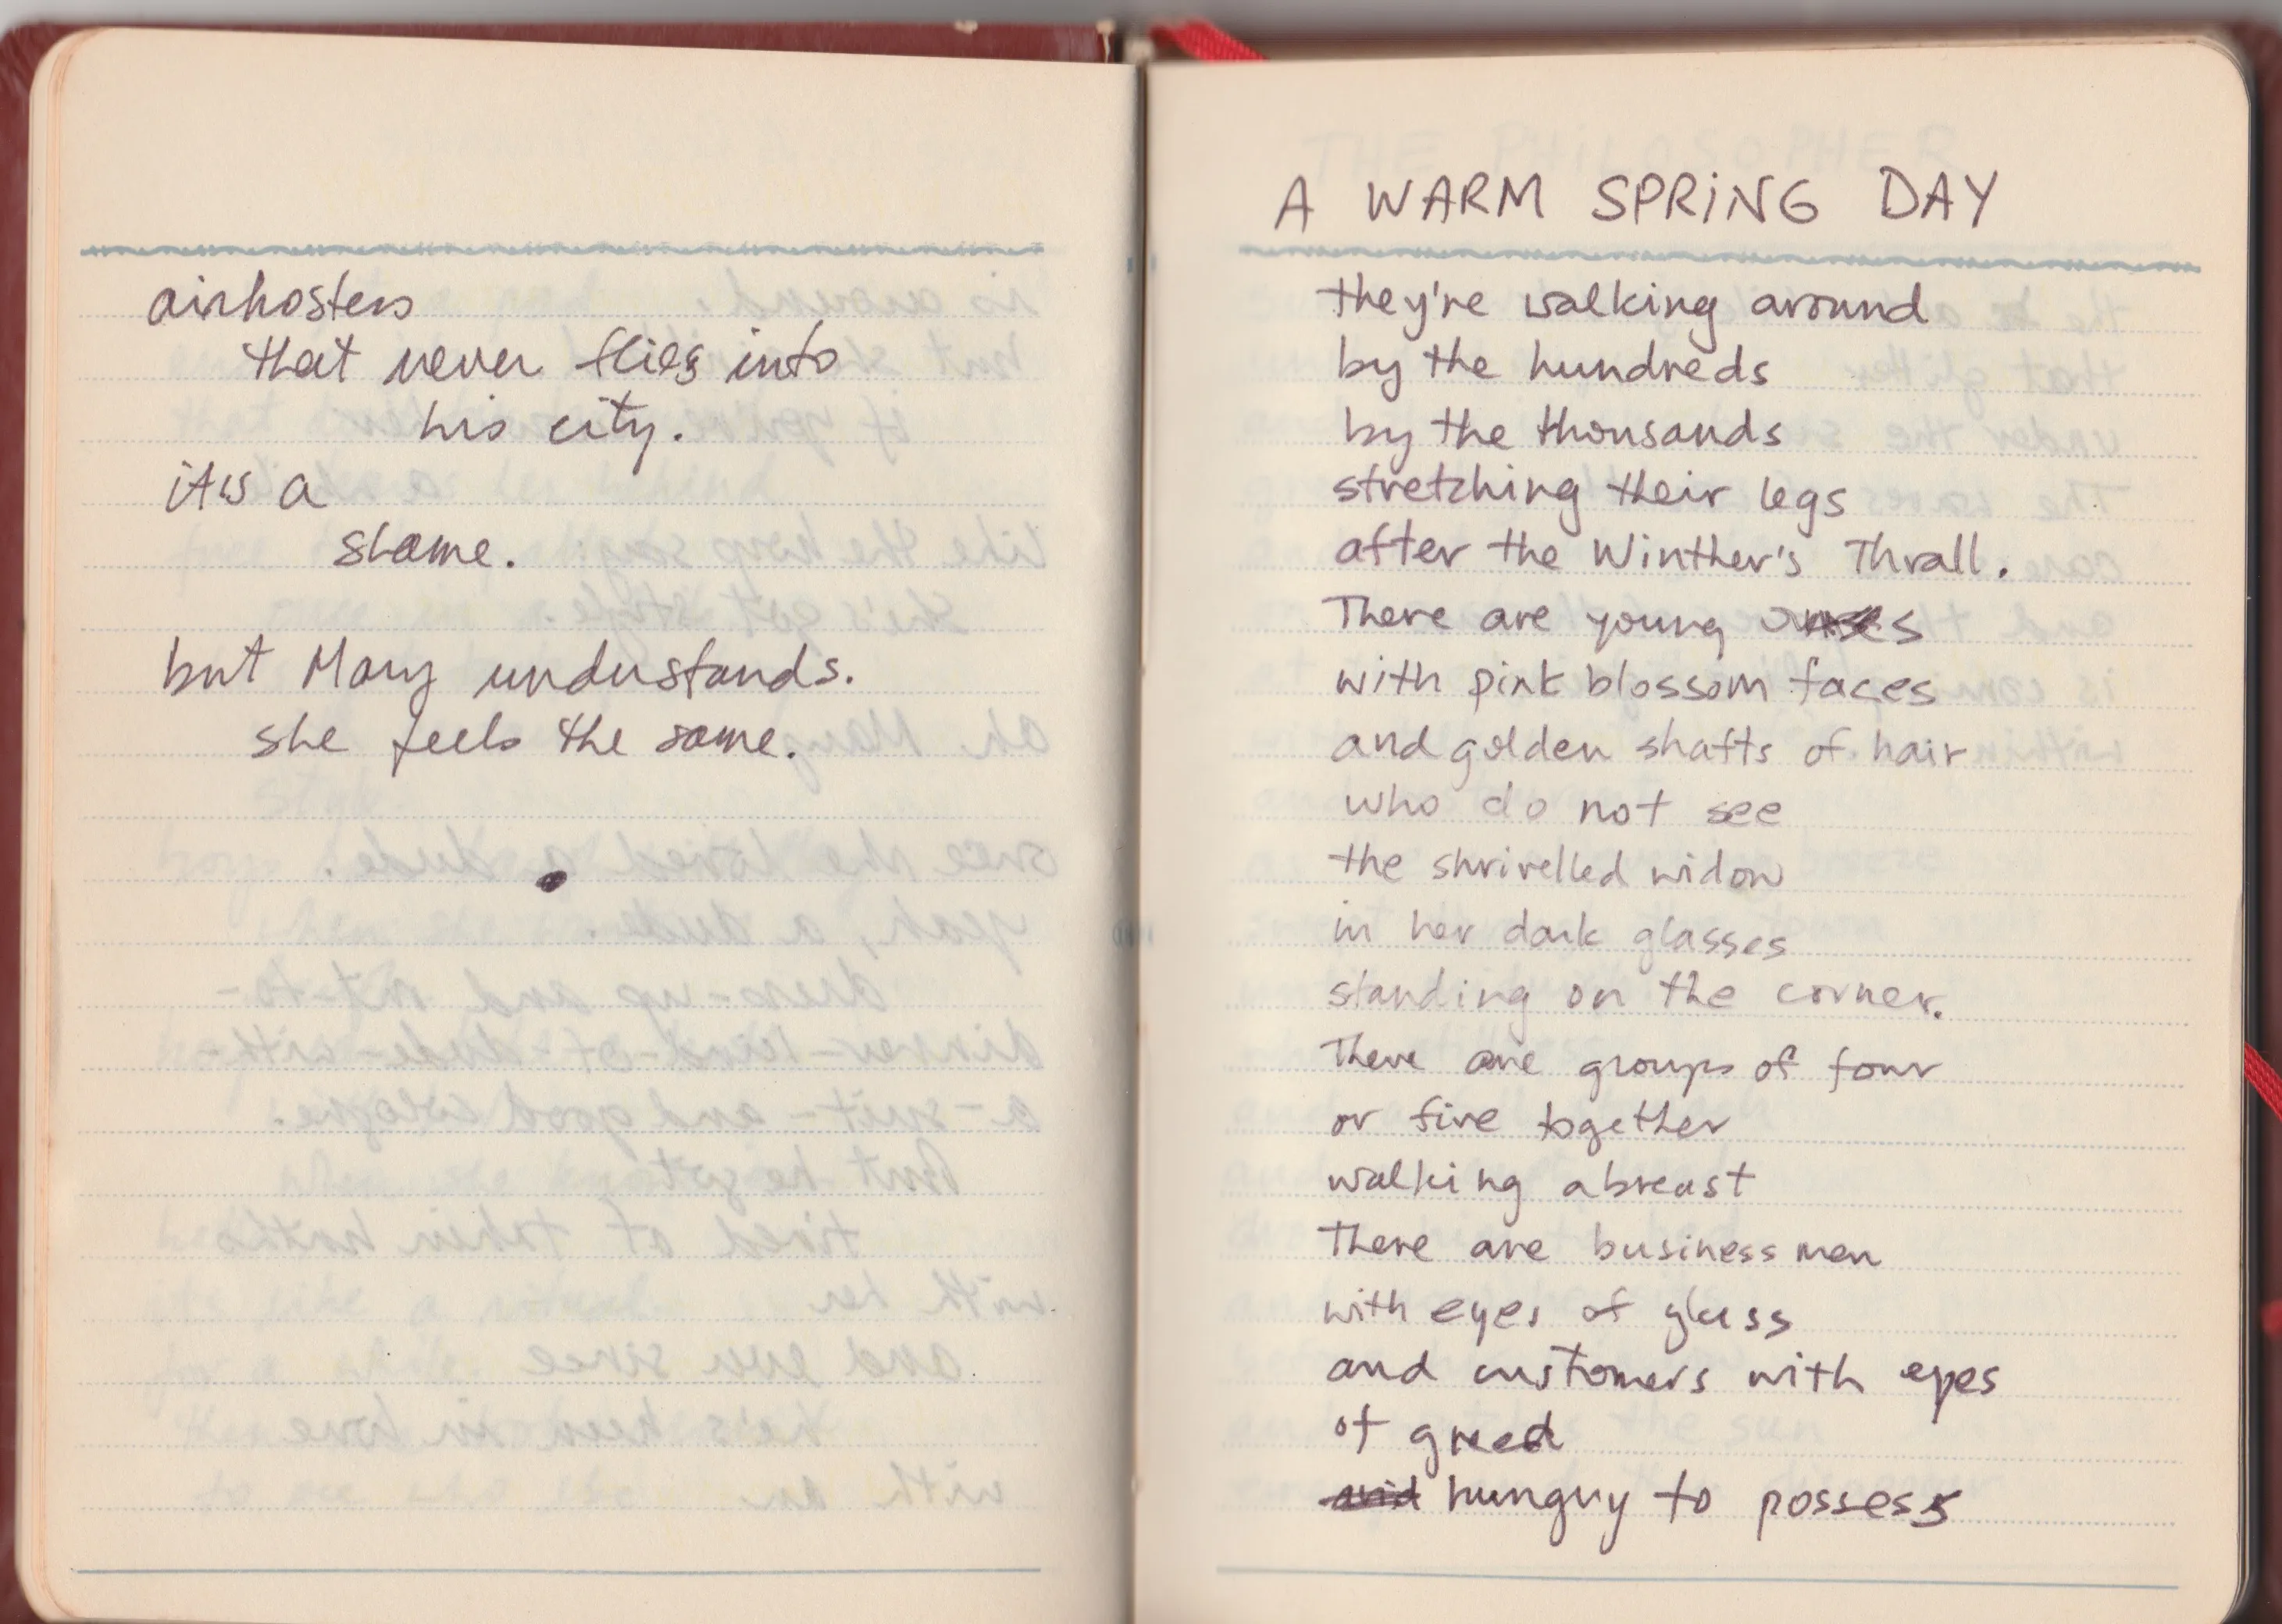 airhostess
that never flies into
his city.
it's a
shame.
but Mary understands.
she feels the same.
A WARM SPRING DAY
they're walking around
by the hundreds
by the thousands
stretching their legs
after the Winther's Thrall.
There are young ones
with pink blossom faces
and golden shafts of hair
who do not see
the shrivelled widow
in her dark glasses
standing on the corner.
There are groups of four
or five together
walking abreast
There are business men
with eyes of glass
and customers with eyes
of greed
avid hungry to possess